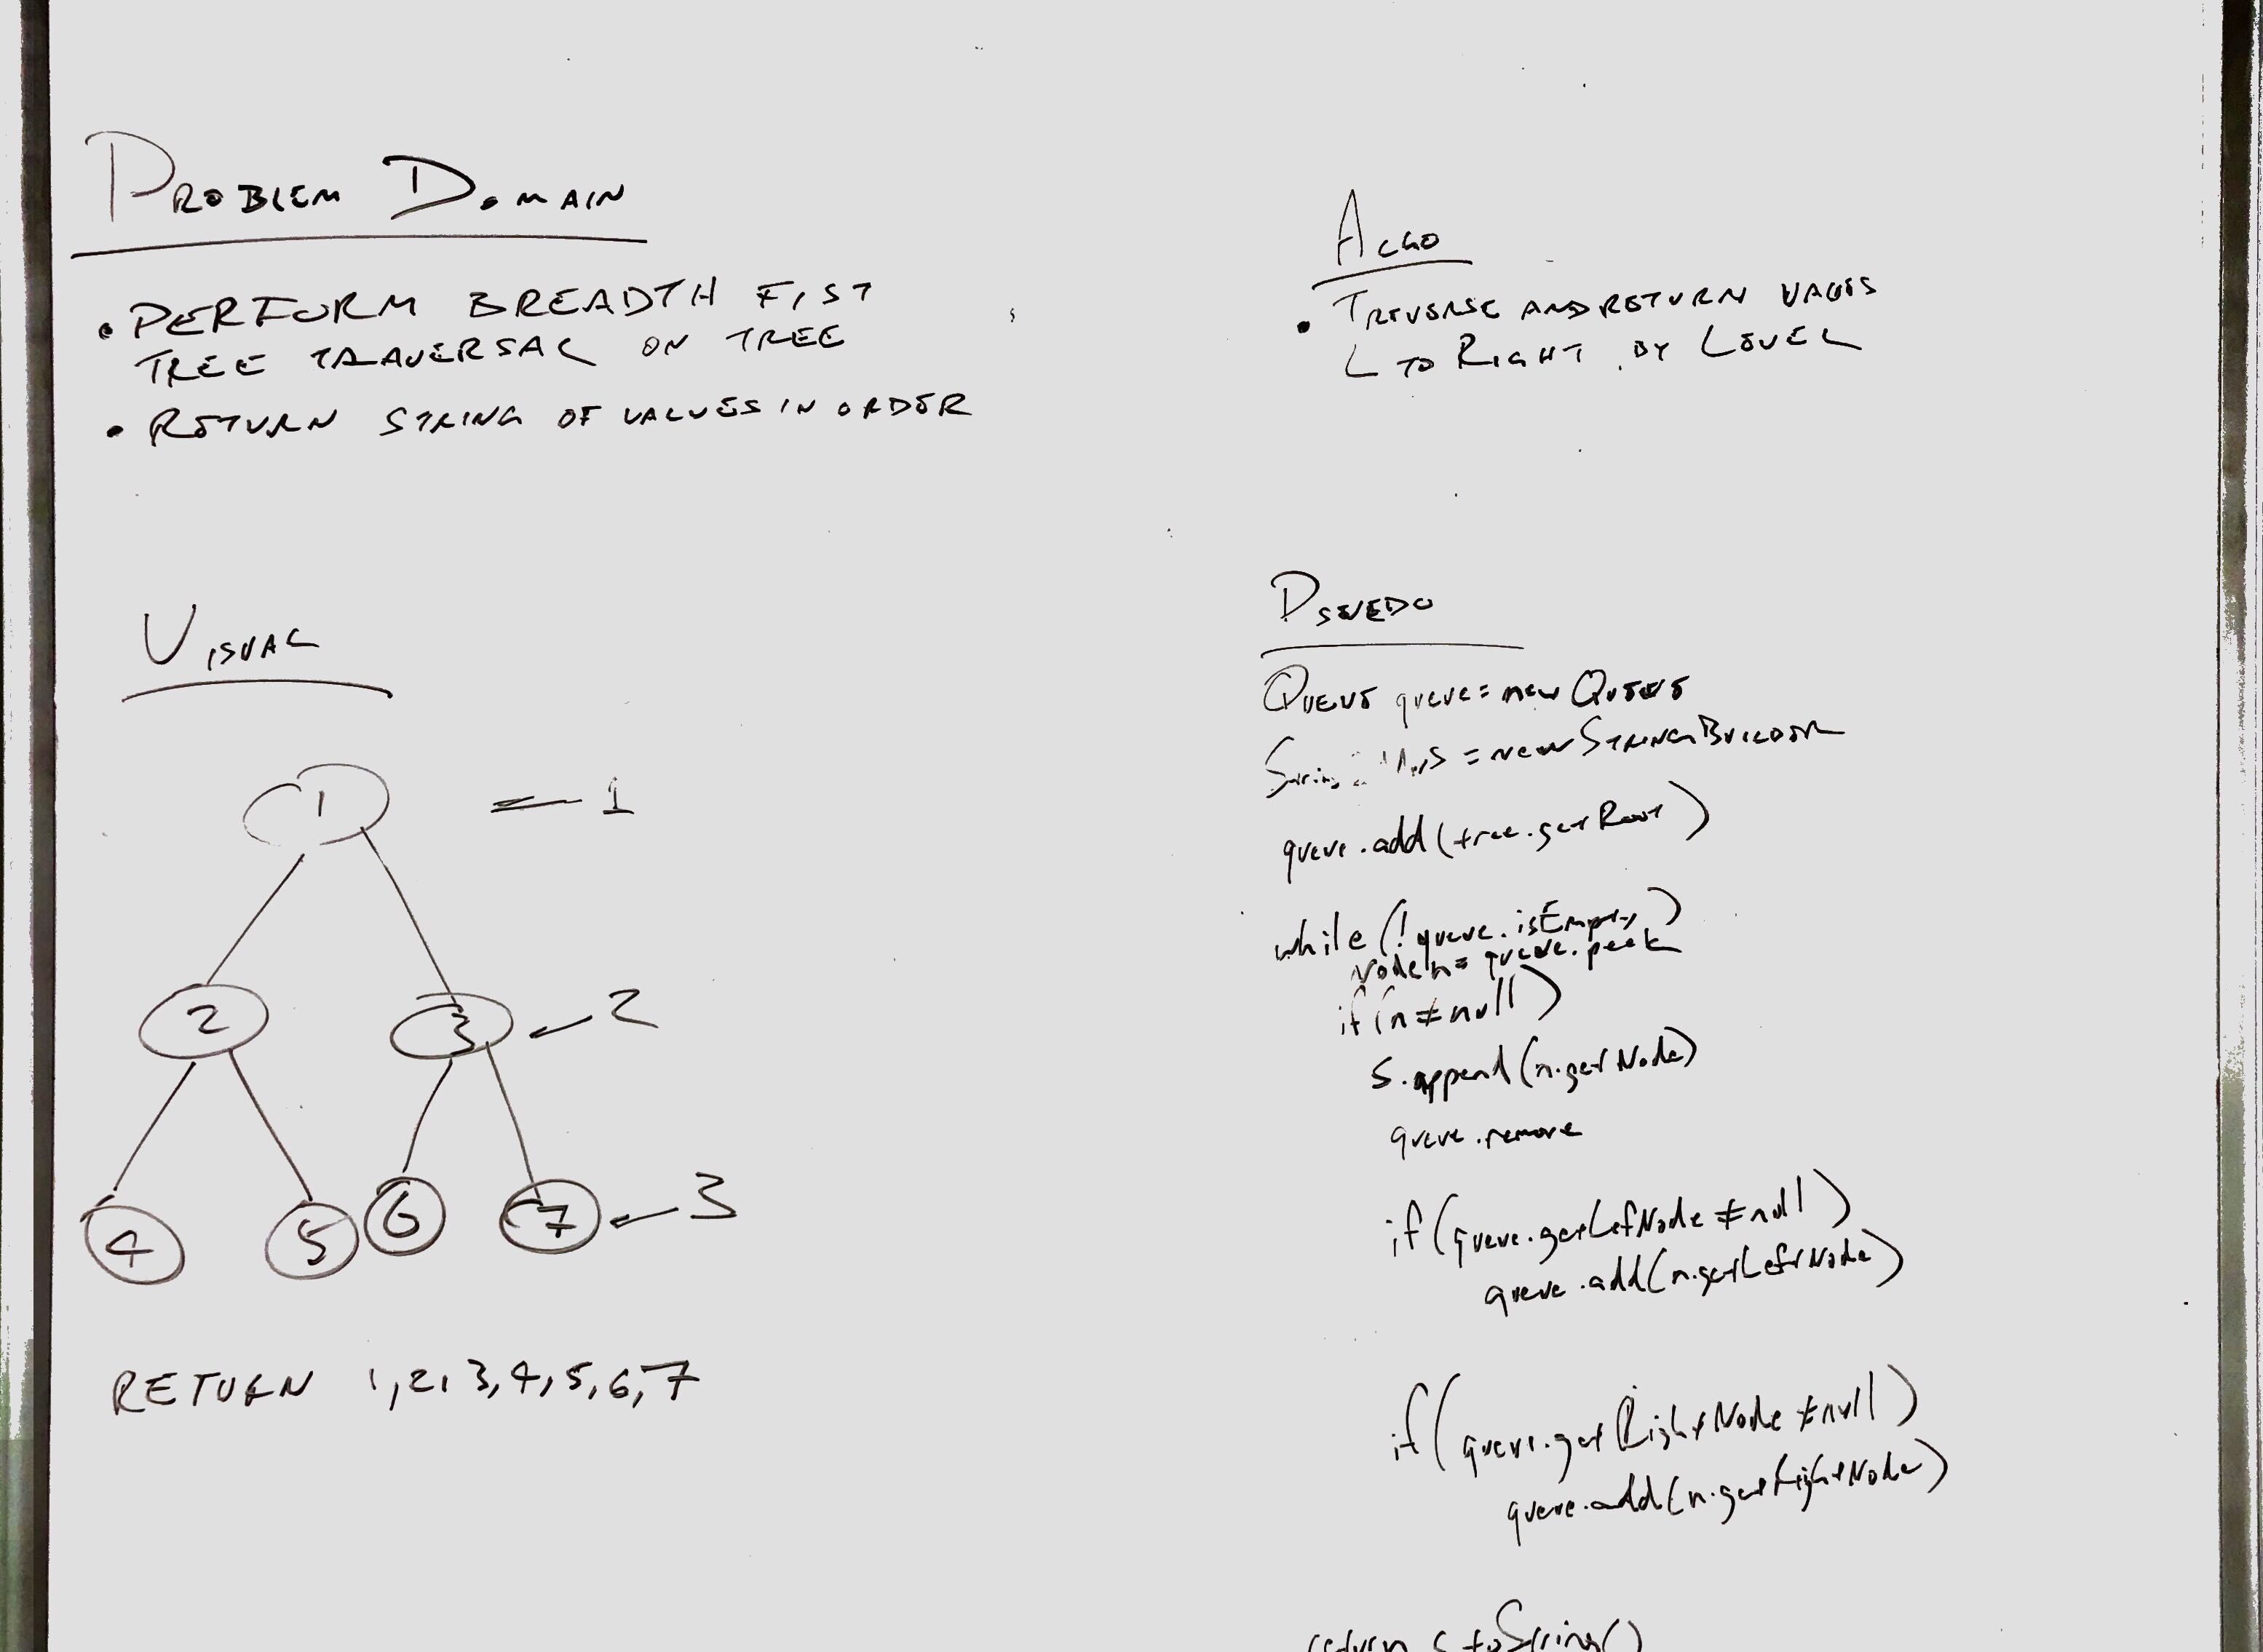 PROBLEM DOMAIN
• PERFORM BREADTH FIST
TREE TRAVERSAL ON TREE
• RETURN STRING OF VALUES IN ORDER
VISUAL
1 1
2 3 2
4 5 6 7 3
RETURN 1,2,3,4,5,6,7
ALGO
• TREVERSE AND RETURN VALUES
L TO RIGHT BY LEVEL
PSUEDO
QUEUE queue = new QUEUE
S = new STRINGBUILDER
queue.add(tree.getRoot)
while (!queue.isEmpty)
Node n = queue.peek
if (n ≠ null)
S.append(n.getNode)
queue.remove
if (queue.getLefNode ≠ null)
queue.add(n.getLeftNode)
if (queue.getRightNode ≠ null)
queue.add(n.getRightNode)
return s.toString()